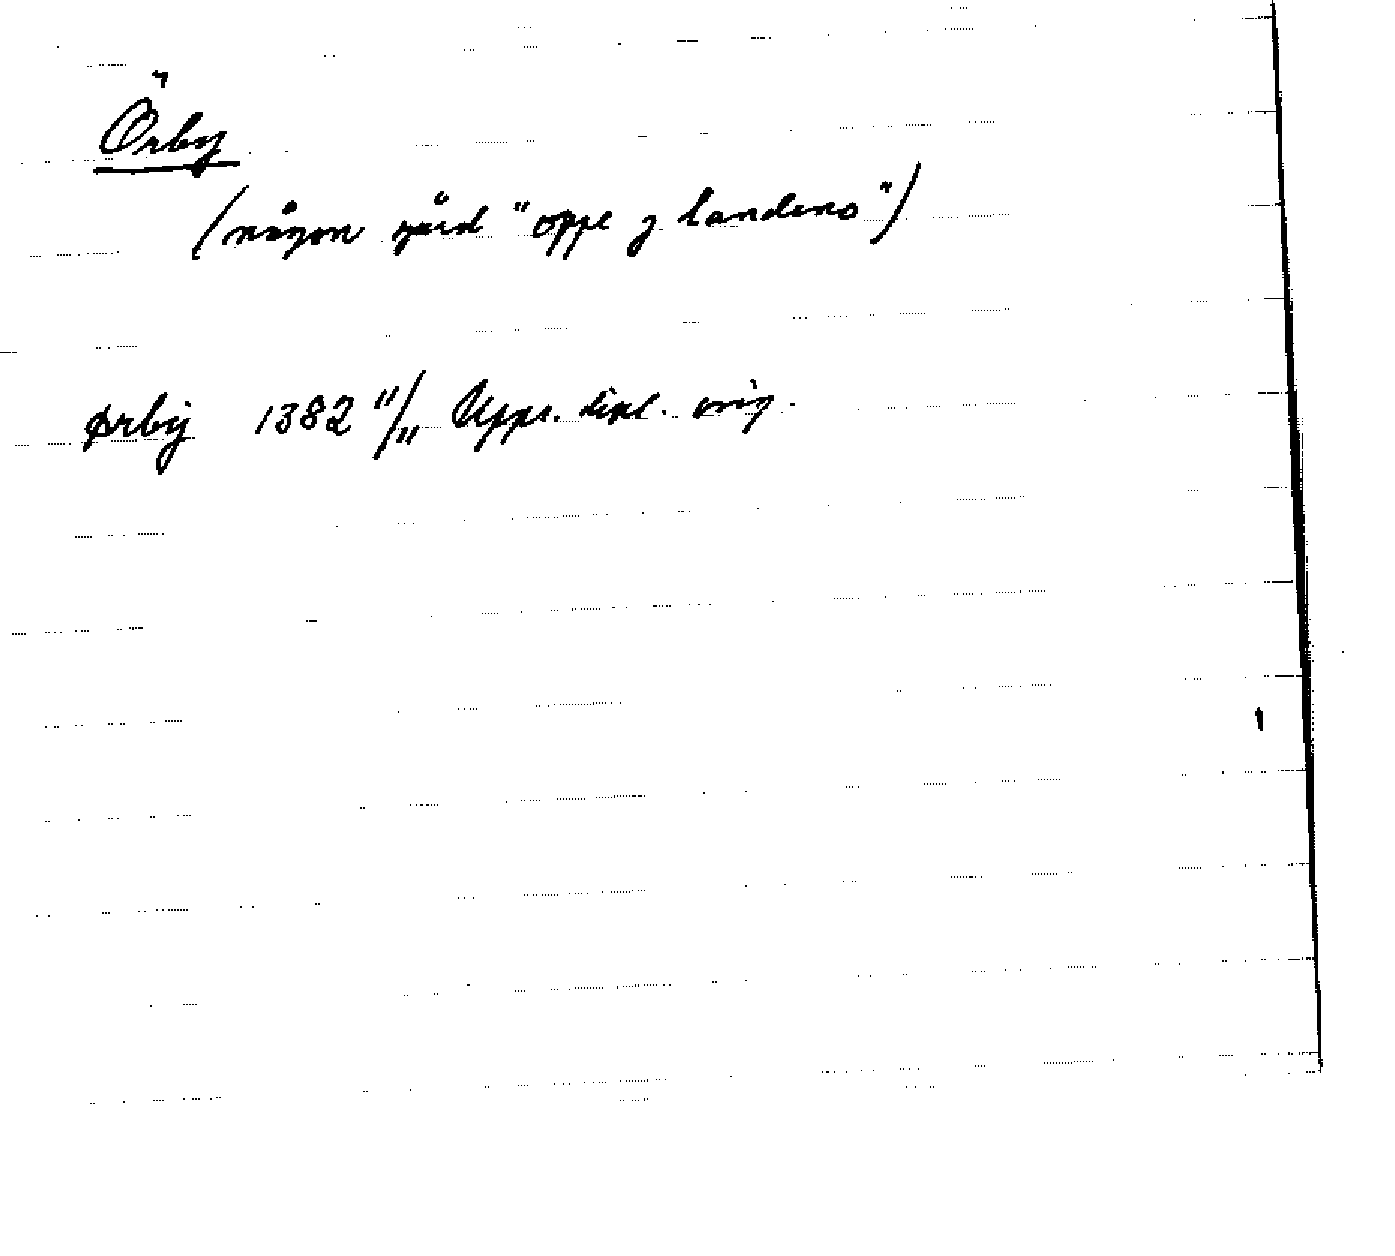 Örby
(någon gård "oppe j landeno")
ørbÿ 1382 11/11 Upps. dipl. orig.